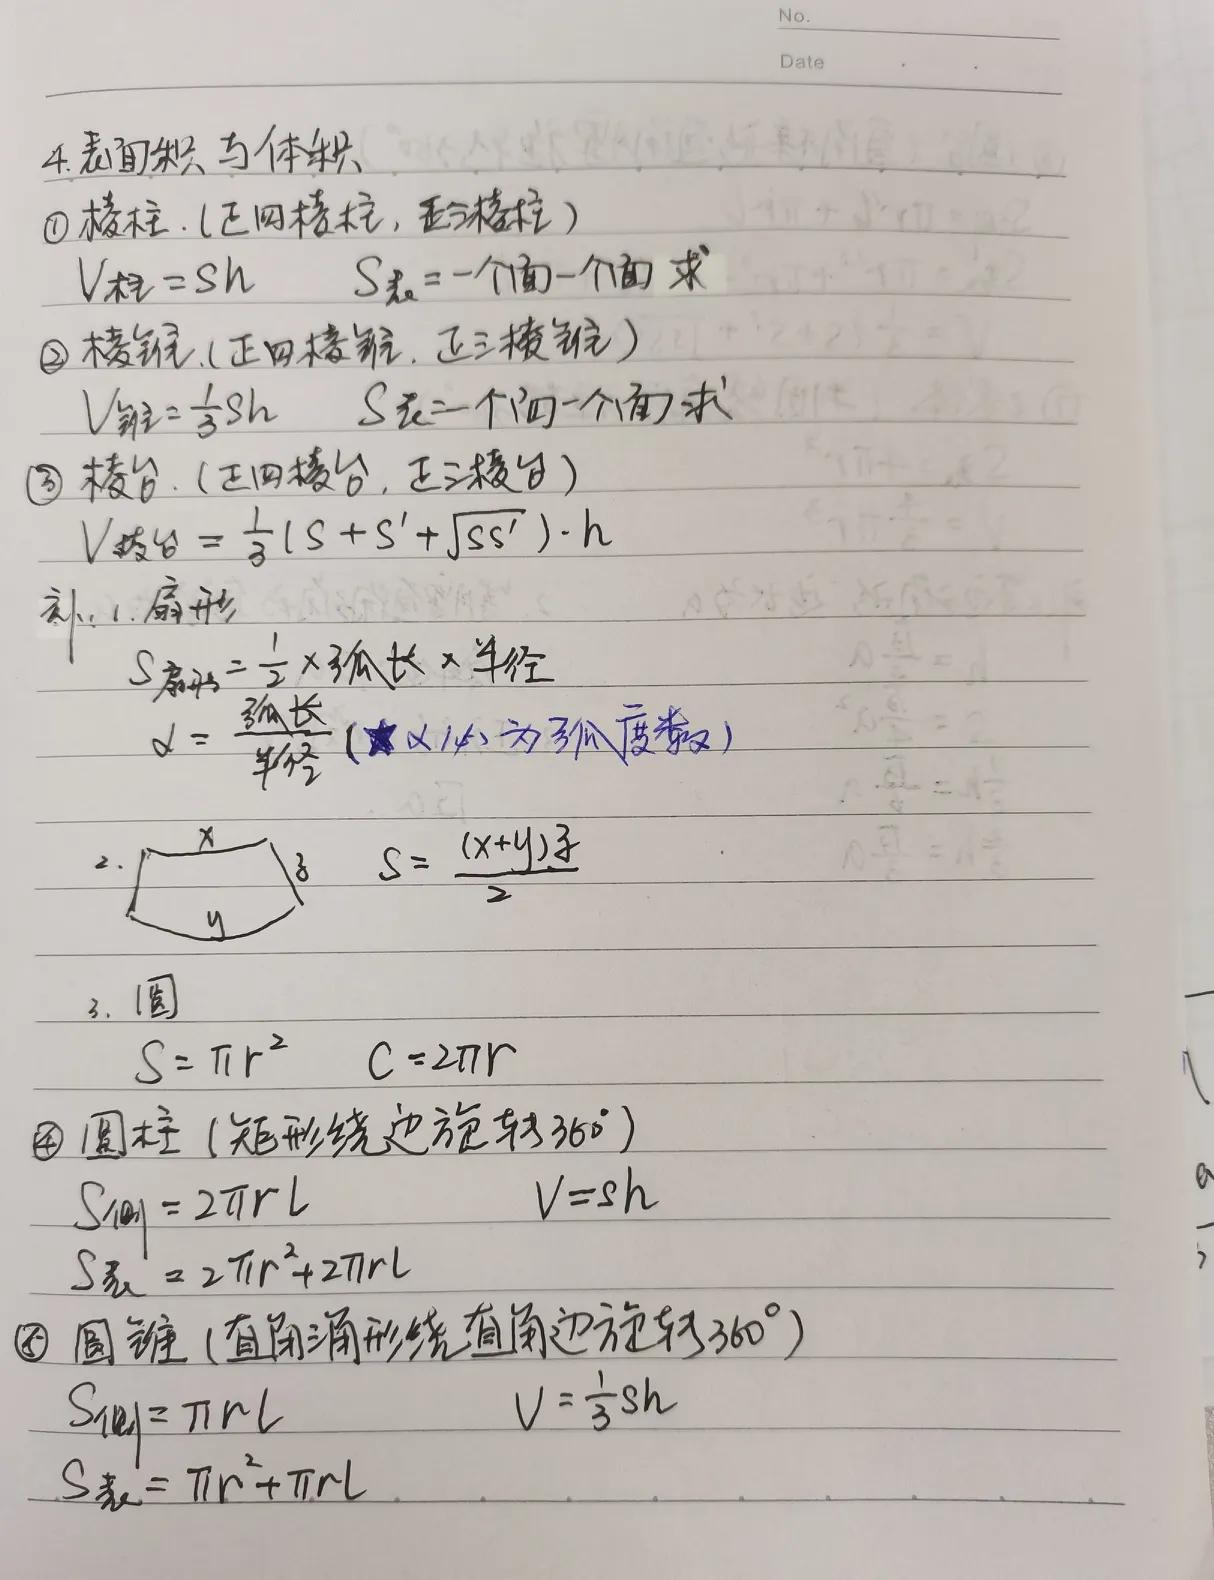 No.
Date
4.表面积与体积
①棱柱.(正四棱柱,正三棱柱)
V柱=Sh S表=一个面一个面求
②棱锥.(正四棱锥.正三棱锥)
V锥=1/3Sh S表=一个面一个面求
③棱台.(正四棱台,正三棱台)
V棱台=1/3(S+S'+√SS')·h
补:1.扇形
S扇形=1/2×弧长×半径
α=弧长/半径(★α为弧度数)
2. x y z S=(x+y)z/2
3.圆
S=πr² C=2πr
④圆柱(矩形绕边旋转360°)
S侧=2πrl V=Sh
S表=2πr²+2πrl
⑤圆锥(直角三角形绕直角边旋转360°)
S侧=πrl V=1/3Sh
S表=πr²+πrl